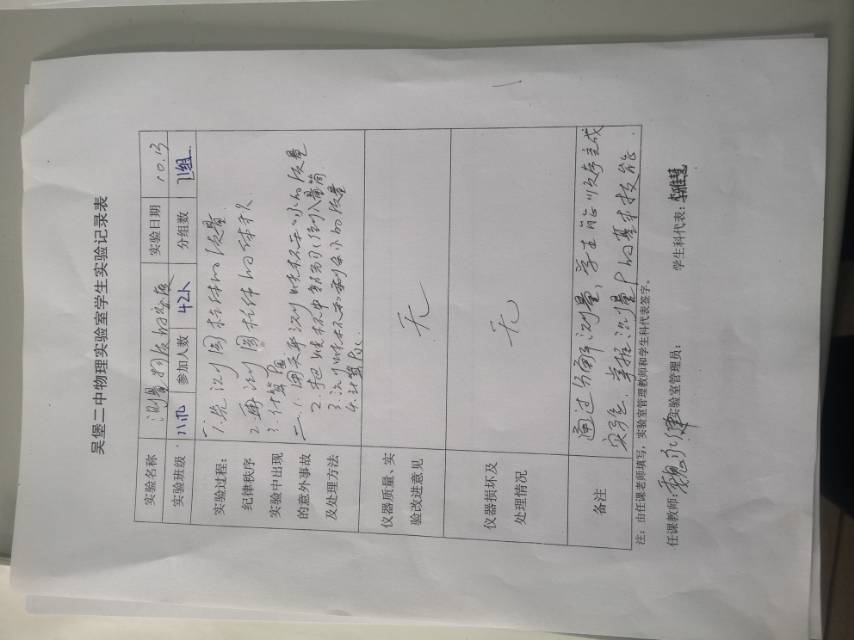 吴堡二中物理实验室学生实验记录表
实验名称 测量物质的密度 实验日期 10.13
实验班级 参加人数 42人 分组数 组
实验过程: 1.先测固体的质量
纪律秩序 2.再测固体的体积
实验中出现 3.计算ρ
的意外事故 二、1.用天平测烧杯和水的质量
及处理方法 2.把烧杯中部分水倒入量筒
3.测烧杯和剩余水的质量
4.计算ρ
仪器质量、实验改进意见 无
仪器损坏及处理情况 无
备注 通过分解测量,学生能顺序完成
实验,掌握测量ρ的基本技能
注:由任课老师填写,实验室管理教师和学生科代表签字。
任课教师: 实验室管理员: 学生科代表: